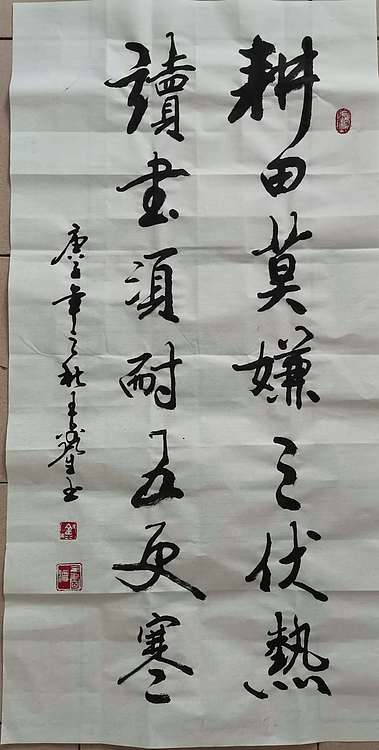 耕田莫嫌三伏熱
讀書須耐五更寒
庚子年之秋王